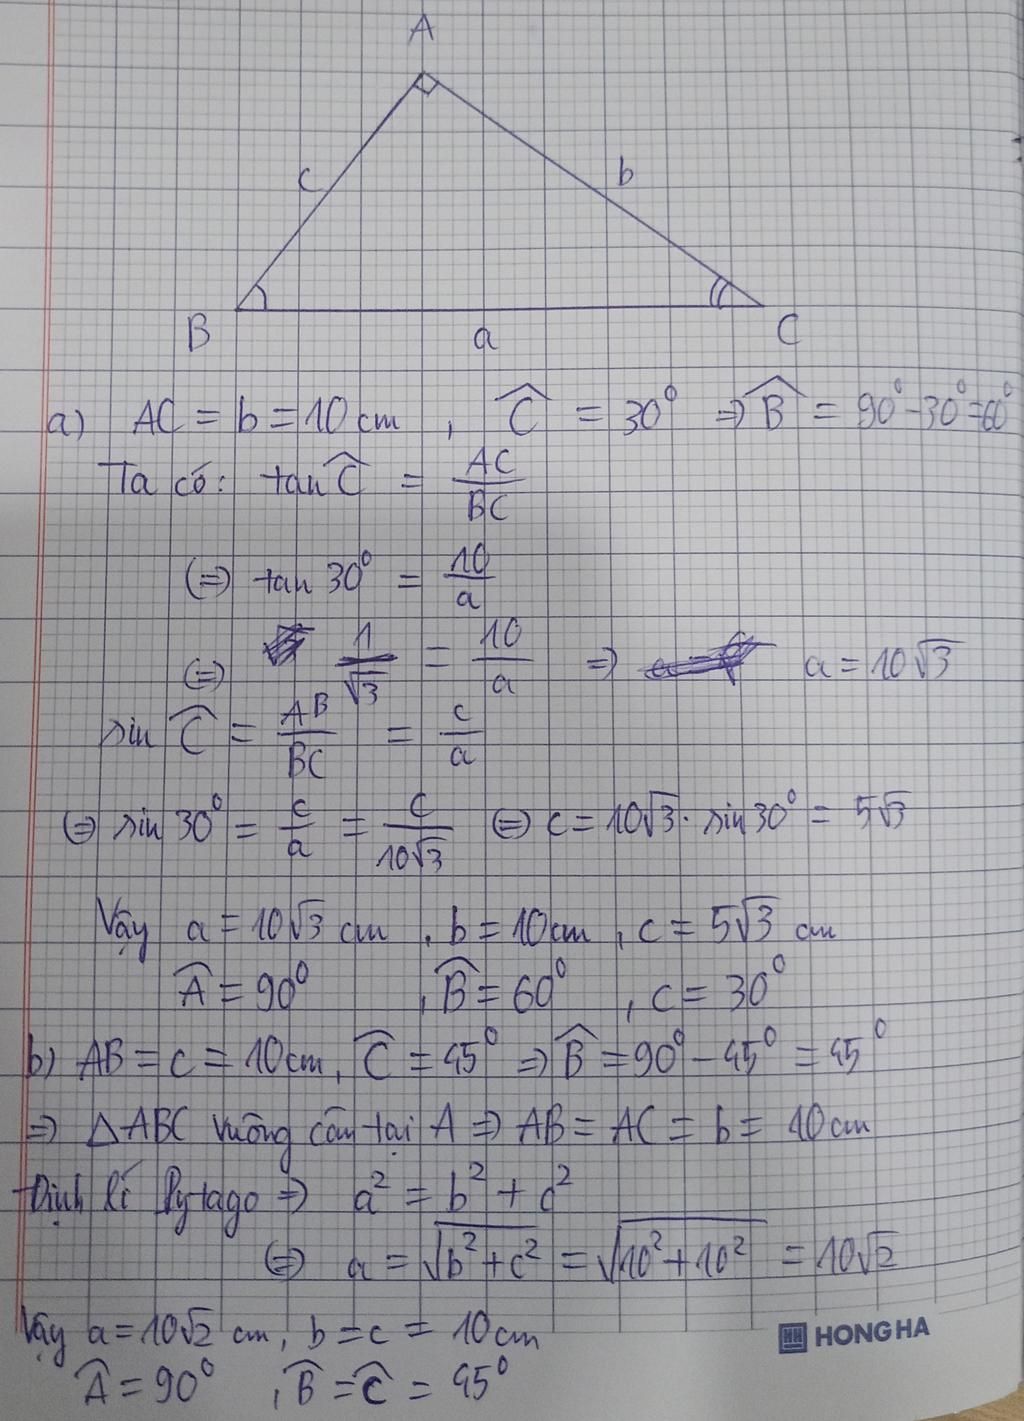 A
c
b
B
a
C
a) AC = b = 10 cm , Ĉ = 30° => B̂ = 90° - 30° = 60°
Ta có: tan Ĉ = AC/BC
(=) tan 30° = 10/a
(=) 1/√3 = 10/a => a = 10√3
sin Ĉ = AB/BC = c/a
(=) sin 30° = c/a = c/10√3 (=) c = 10√3 . sin 30° = 5√3
Vậy a = 10√3 cm , b = 10 cm , c = 5√3 cm
Â = 90° , B̂ = 60° , c = 30°
b) AB = c = 10 cm , Ĉ = 45° => B̂ = 90° - 45° = 45°
=> ΔABC vuông cân tại A => AB = AC = b = 10 cm
Định lí Pytago => a² = b² + c²
(=) a = √(b² + c²) = √(10² + 10²) = 10√2
Vậy a = 10√2 cm , b = c = 10 cm
HONG HA
Â = 90° , B̂ = Ĉ = 45°